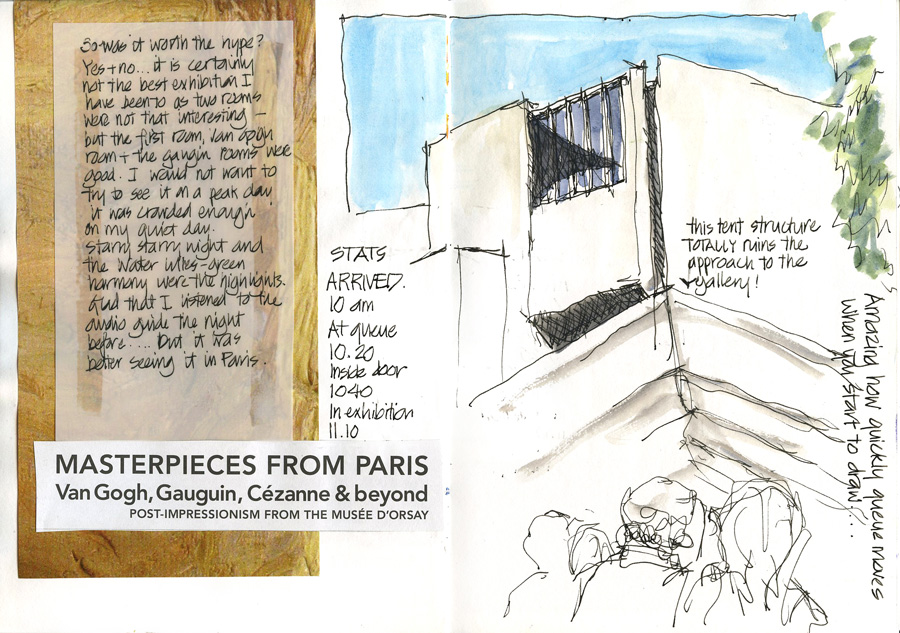 So was it worth the hype?
Yes + no... it is certainly
not the best exhibition I
have been to as two rooms
were not that interesting –
but the first room, Van Gogh
room + the gaugin rooms were
good. I would not want to
try to see it on a peak day
it was crowded enough
on my quiet day.
Starry starry night and
the water lilies-green
harmony were the highlights.
Glad that I listened to the
audio guide the night
before.... But it was
better seeing it in Paris.
MASTERPIECES FROM PARIS
Van Gogh, Gauguin, Cézanne & beyond
POST-IMPRESSIONISM FROM THE MUSÉE D'ORSAY
STATS
ARRIVED.
10 am
At queue
10.20
Inside door
1040
In exhibition
11.10
this tent structure
TOTALLY ruins the
approach to the
gallery!
Amazing how quickly queue moves
when you start to draw!...